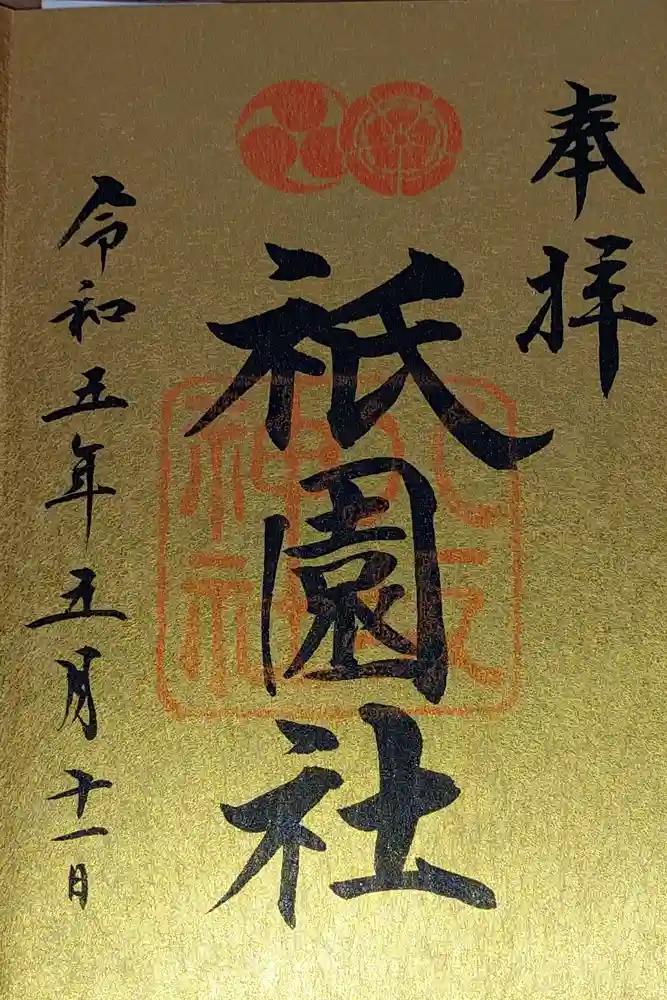 奉拝
祇園社
八坂
神社
令和五年五月十一日